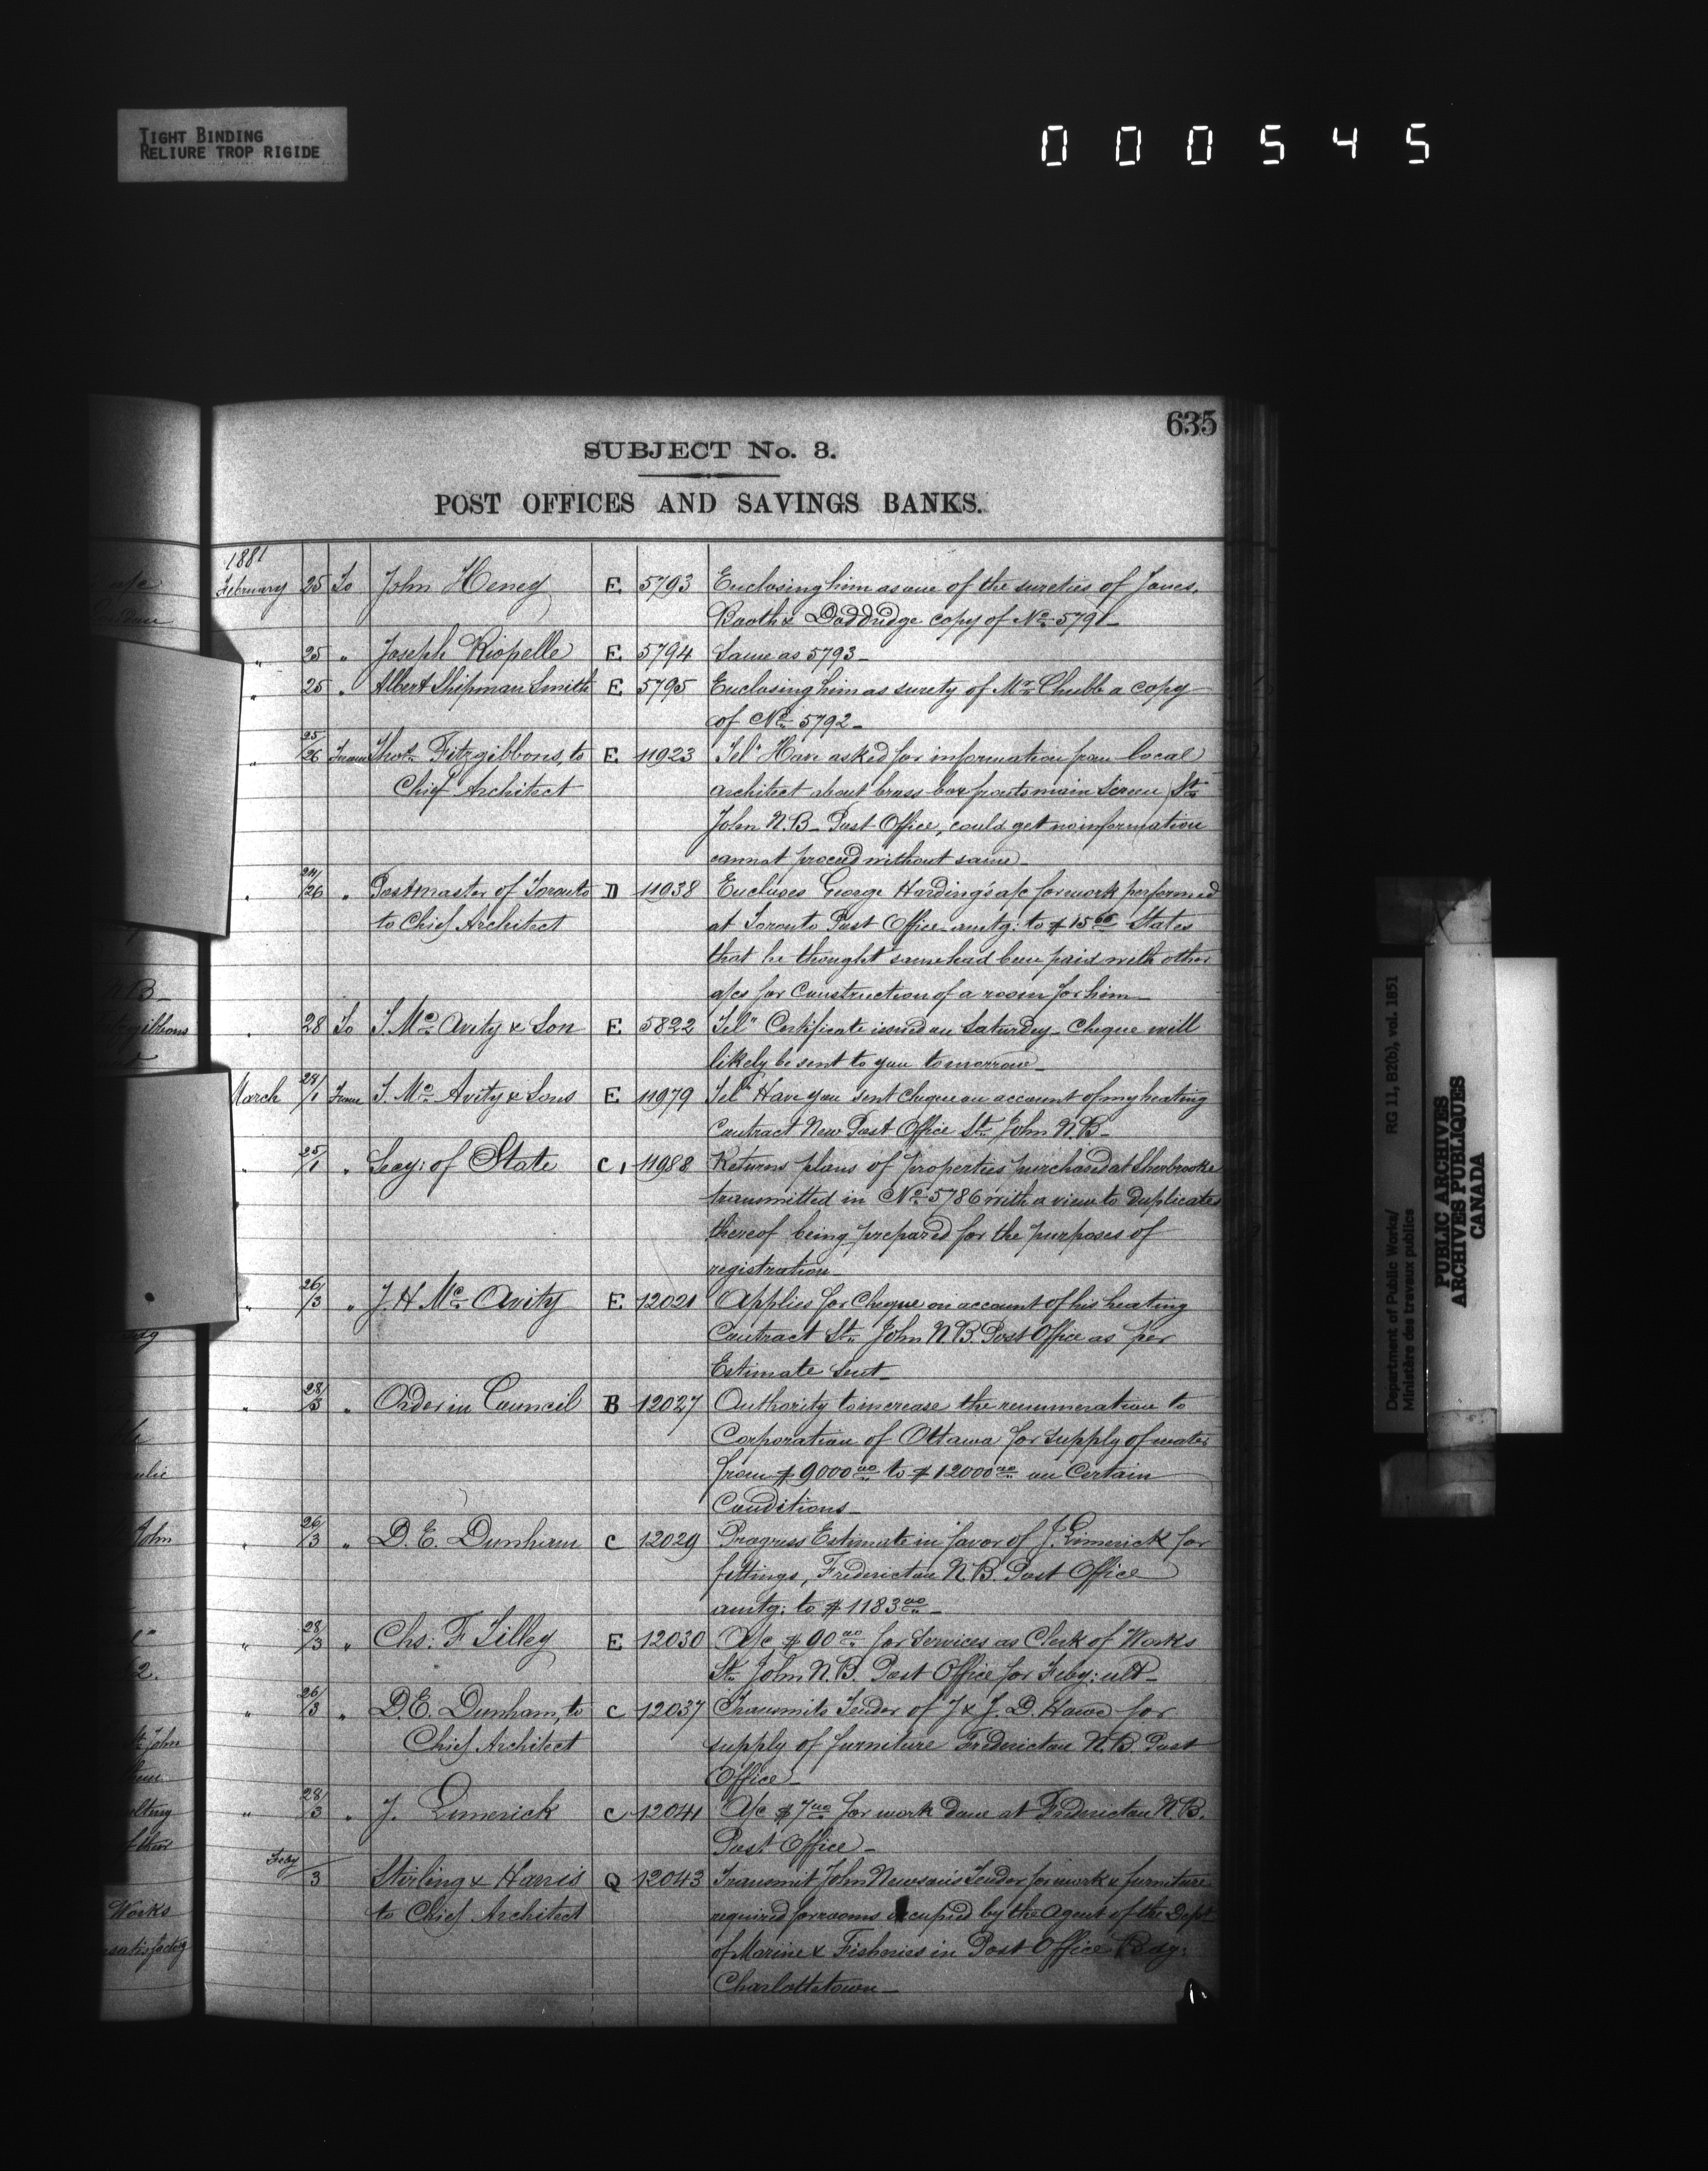 TIGHT BINDING
RELIURE TROP RIGIDE
000545
635
SUBJECT No. 3.
POST OFFICES AND SAVINGS BANKS.
1881
February 25 To John Heney E 5793 Enclosing him as one of the sureties of Jones,
Booth & Doddridge copy of No. 5791 _
" 25 " Joseph Riopelle E 5794 Same as 5793 _
" 25 " Albert Shipman Smith E 5795 Enclosing him as surety of Mr. Chubb a copy
of No. 5792 _
" 25/26 From Thos. Fitzgibbons, to E 11923 Tel" Have asked for information from local
Chief Architect architect about brass box fronts main Screen St.
John N.B _ Post Office, could get no information
cannot proceed without same _
" 24/26 " Postmaster of Toronto D 11938 Encloses George Harding's a/c for work performed
to Chief Architect at Toronto Post Office amtg: to $15 66 States
that he thought same had been paid with other
a/cs for Construction of a room for him _
" 28 To T. Mc. Avity & Son E 5822 Tel" Certificate issued on Saturday _ Cheque will
likely be sent to you tomorrow _
March 28/1 From T. Mc. Avity & Sons E 11979 Tel" Have you sent cheque on account of my heating
Contract New Post Office St. John N.B _
" 25/1 " Secy: of State C 11988 Returns plans of properties purchased at Sherbrooke
transmitted in No. 5786 with a view to Duplicates
thereof being prepared for the purposes of
registration _
" 26/3 " J. H. Mc. Avity E 12021 Applies for Cheque on account of his heating
Contract St. John N.B. Post Office as per
Estimate Sent _
" 28/3 " Order in Council B 12027 Authority to increase the renumeration to
Corporation of Ottawa for supply of water
from $9000 00 to $12000 00 on Certain
Conditions _
" 26/3 " D. E. Dunham C 12029 Progress Estimate in favor of J. Limerick for
fittings, Fredericton N.B. Post Office
amtg: to $1183 00 _
" 28/3 " Chs: F Tilley E 12030 A/c $90 00 for Services as Clerk of Works
St. John N.B. Post Office for Feby: ult _
" 26/3 " D. E. Dunham, to C 12037 Transmits Tender of J & J. D. Howe for
Chief Architect supply of furniture Fredericton N.B. Post
Office _
" 28/3 " J. Limerick C 12041 A/c $7 00 for work done at Fredericton N.B.
Post Office _
Feby /3 Stirling & Harris Q 12043 Transmit John Newson's Tender for work & furniture
to Chief Architect required for rooms occupied by the Agent of the Dept
of Marine & Fisheries in Post Office Bdg:
Charlottetown _
Department of Public Works/ RG 11, B2(b), vol. 1851
Ministère des travaux publics
PUBLIC ARCHIVES
ARCHIVES PUBLIQUES
CANADA